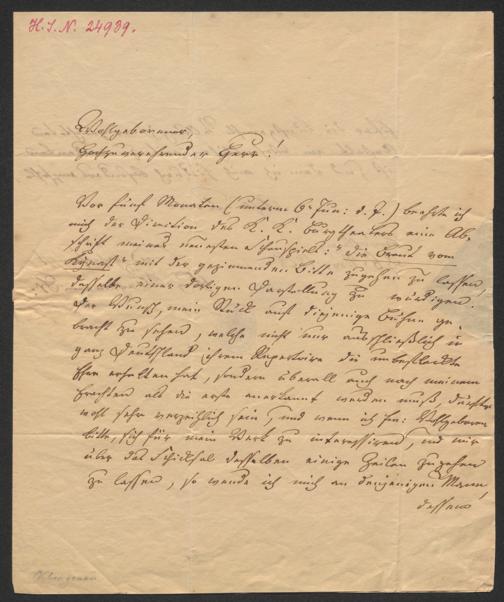 H. I. N. 24989.
Wohlgeborener,
Hochzuverehrender Herr!
Vor fünf Monaten (unterm 6 Jun: d. J.) beehrte ich
mich der Direction des K. K. Burgtheaters eine Ab-
schrift meines neuesten Schauspiels: "die Braut vom
Kynast" mit der geziemenden Bitte zugehen zu lassen,
dasselbe einer dortigen Darstellung zu würdigen.
Der Wunsch, mein Stück auf diejenige Bühne ge-
bracht zu sehen, welche nicht nur ausschließlich in
ganz Deutschland ihrem Repertoire die unbefleckte
Ehre erhalten hat, sondern überall auch nach meinem
Erachten als die erste anerkannt werden muß, dürfte
wohl sehr verzeihlich sein, und wenn ich Ew: Wohlgeboren
bitte, sich für mein Werk zu interessiren, und mir
über das Schicksal desselben einige Zeilen zugehen
zu lassen, so wende ich mich an denjenigen Mann,
dessen